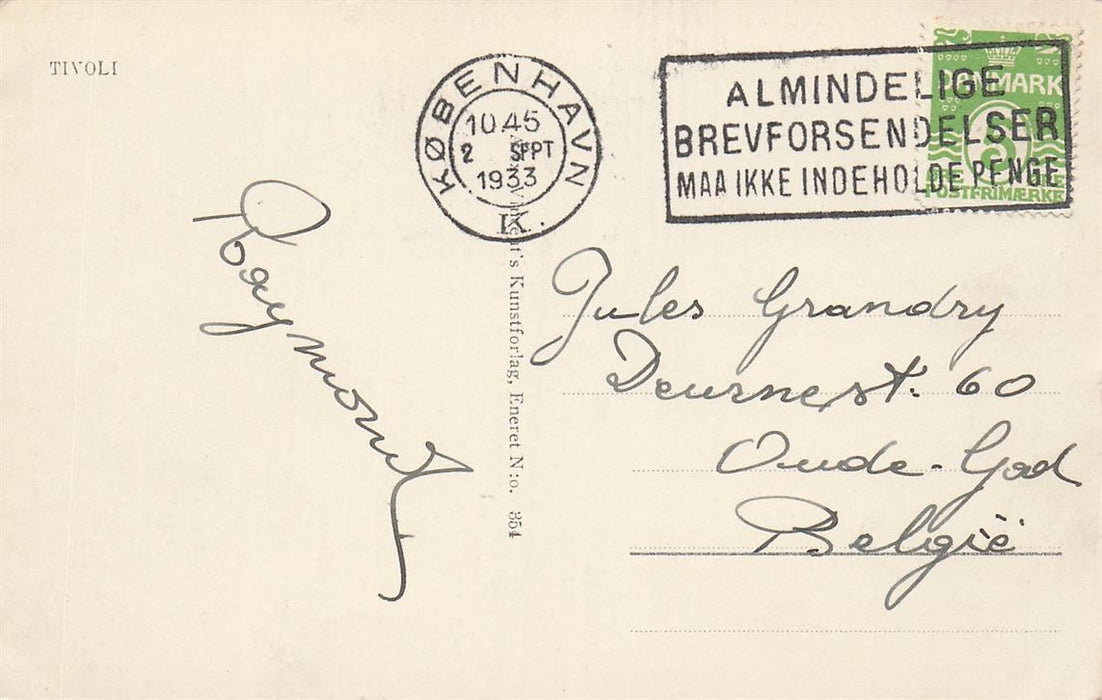 TIVOLI
KØBENHAVN
10.45
2 SEPT
1933
K.
ALMINDELIGE
BREVFORSENDELSER
MAA IKKE INDEHOLDE PENGE
DANMARK
POSTFRIMÆRKE
Raymond
's Kunstforlag, Eneret N:o. 354
Jules Grandry
Deurnest. 60
Oude-God
België